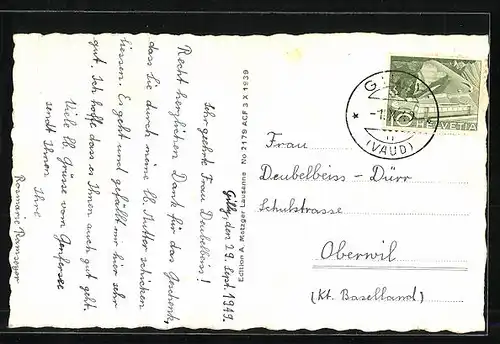 Gilly, den 29. Sept. 1949.
Sehr geehrte Frau Deubelbeiss!
Recht herzlichen Dank für das Geschenk,
dass Sie durch meine lb. Mutter schicken
liessen. Es geht und gefällt mir hier sehr
gut. Ich hoffe dass es Ihnen auch gut geht.
Viele lb. Grüsse vom Genfersee
sendt Ihnen Ihre
Rosmarie Ramseyer
Edition A. Metzger Lausanne No 2179 ACF 3 X 1939
HELVETIA
10
(VAUD)
Frau
Deubelbeiss-Dürr
Schulstrasse
Oberwil
(Kt. Baselland)